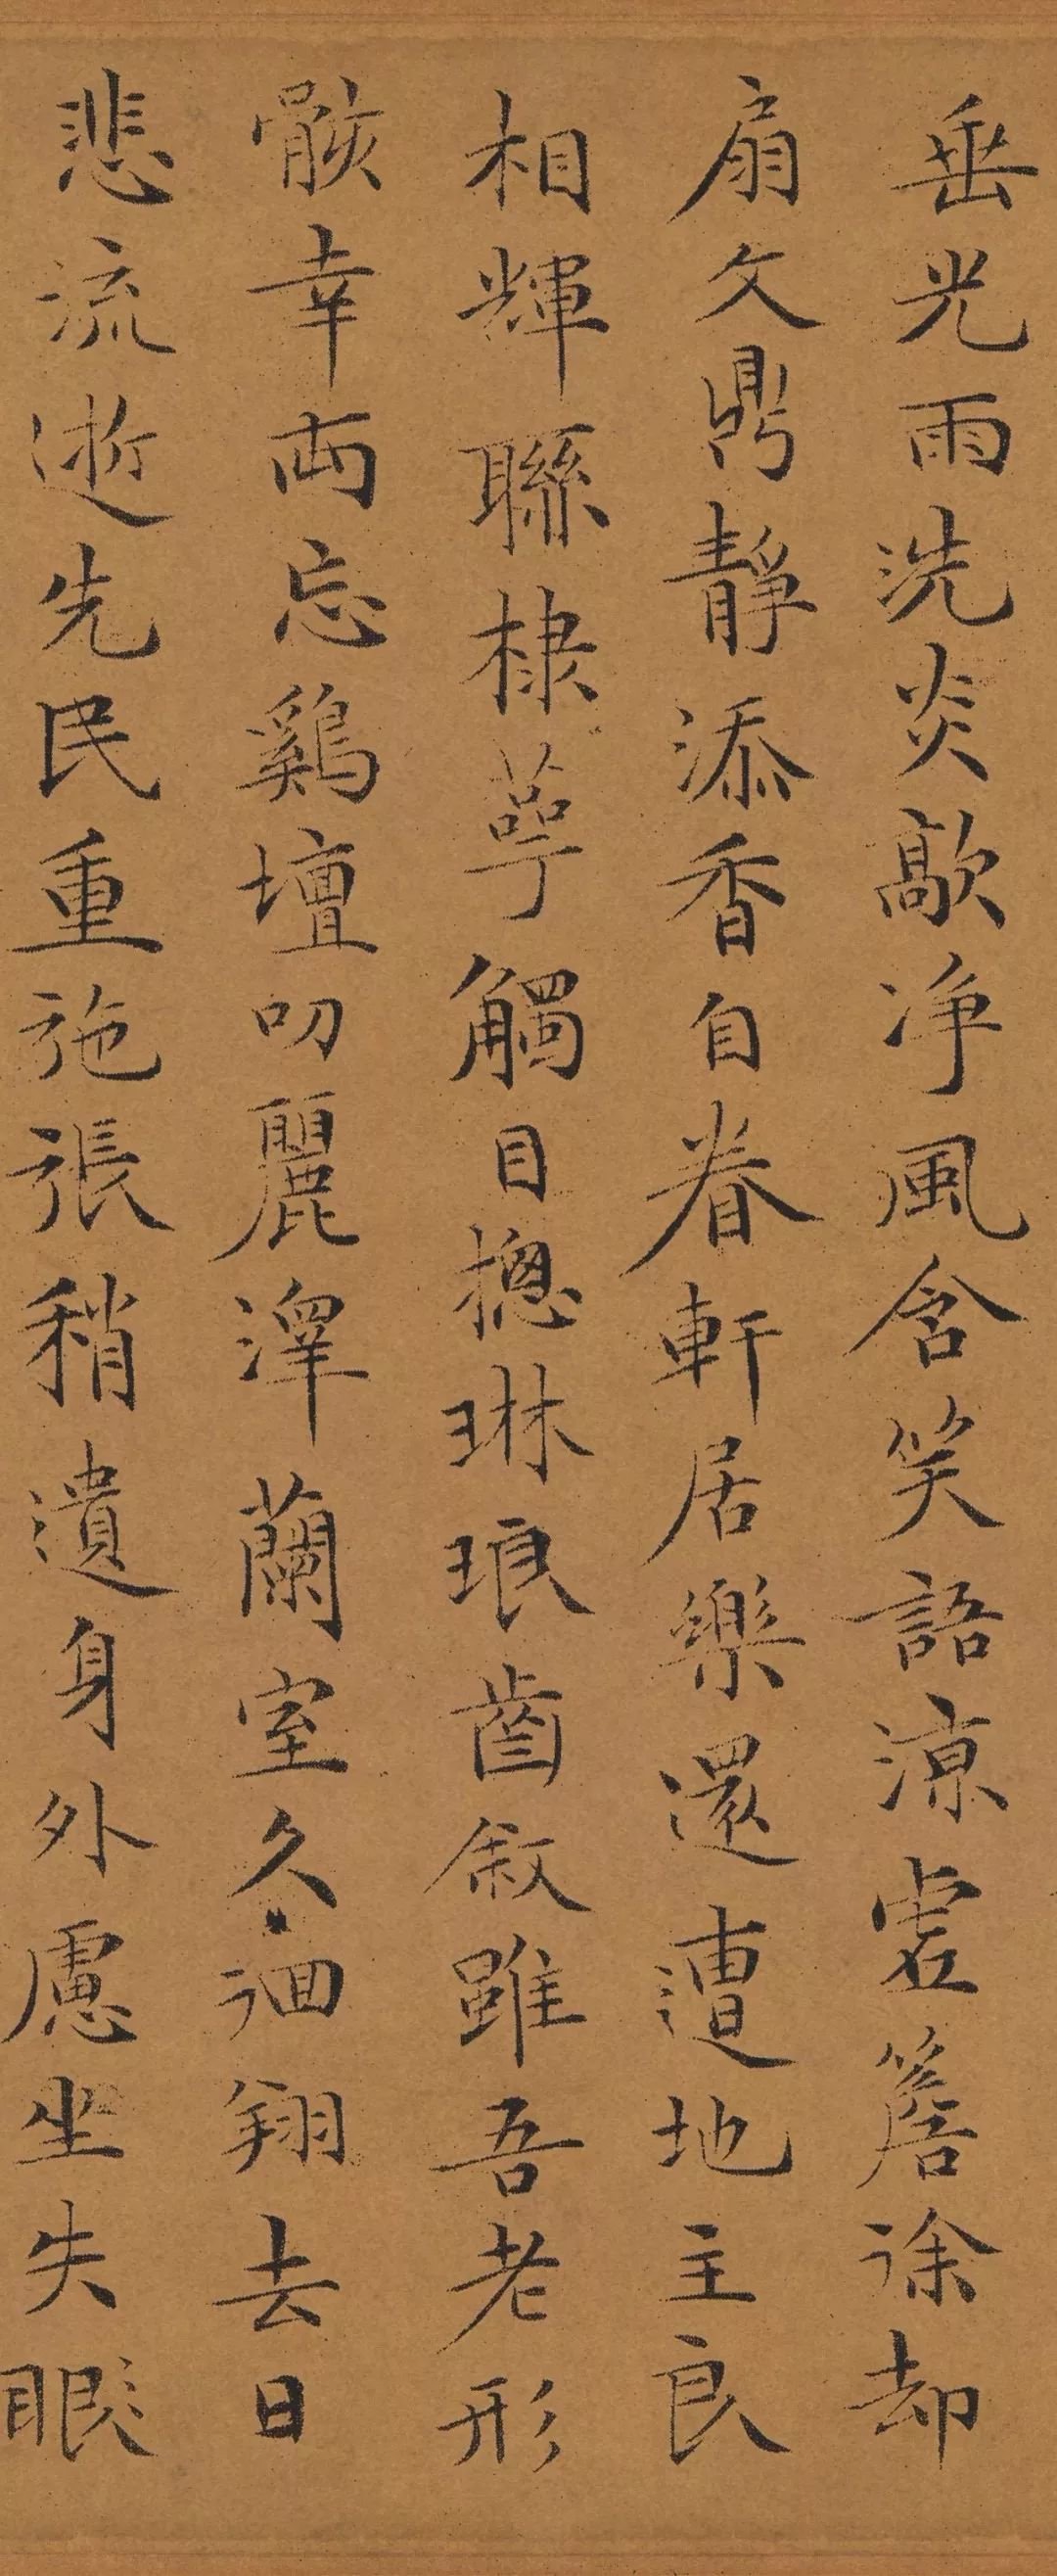 垂光雨洗炎歊浄風含笑語涼虗簷徐却
扇文鼎靜添香自眷軒居樂還遭地主良
相輝聯棣萼觸目摠琳琅齒敘雖吾老形
骸幸両忘鷄壇叨麗澤蘭室久徊翔去日
悲流逝先民重施張稍遺身外慮坐失眼